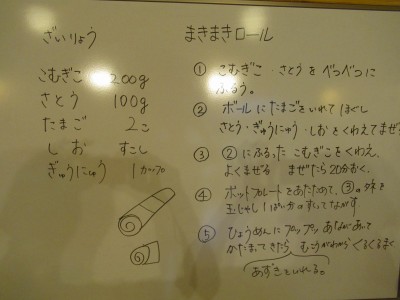 ざいりょう
こむぎこ 200g
さとう 100g
たまご 2こ
しお すこし
ぎゅうにゅう 1カップ
まきまきロール
① こむぎこ・さとうをべつべつに
ふるう。
② ボールにたまごをいれてほぐし
さとう・ぎゅうにゅう・しおをくわえてまぜ
③ ②にふるったこむぎこをくわえ、
よくまぜる まぜたら20分おく。
④ ホットプレートをあたためて、③の
玉じゃくし1ぱいか ながす
⑤ ひょうめんにプップツあながあいて
かたまってきたら むこうがわからくるくるまく
あずきをいれる。